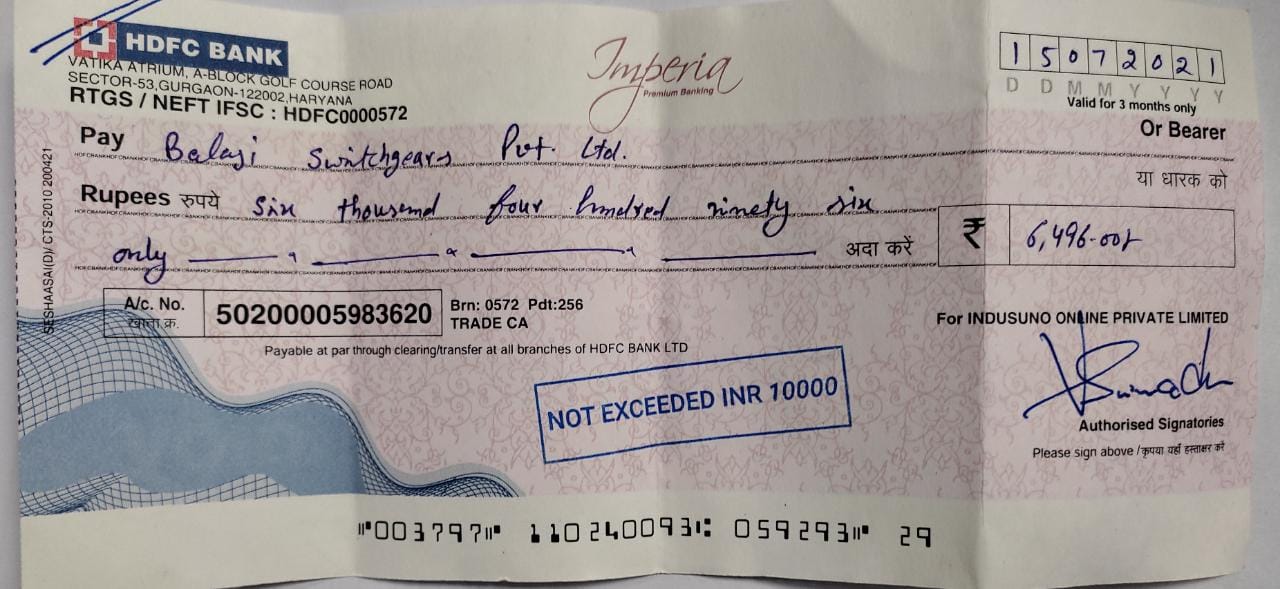 HDFC BANK
VATIKA ATRIUM, A-BLOCK GOLF COURSE ROAD
SECTOR-53,GURGAON-122002,HARYANA
RTGS / NEFT IFSC : HDFC0000572
Imperia
Premium Banking
1 5 0 7 2 0 2 1
D D M M Y Y Y Y
Valid for 3 months only
Pay Balaji Switchgears Pvt. Ltd. Or Bearer
या धारक को
Rupees रुपये Six thousand four hundred ninety six
only अदा करें ₹ 6,496.00/-
A/c. No. खाता क्र. 50200005983620 Brn: 0572 Pdt:256
TRADE CA
Payable at par through clearing/transfer at all branches of HDFC BANK LTD
For INDUSUNO ONLINE PRIVATE LIMITED
NOT EXCEEDED INR 10000
Authorised Signatories
Please sign above / कृपया यहाँ हस्ताक्षर करें
SESHAASAI(D)/ CTS-2010 2000421
⑈003797⑈ 110240093⑆ 059293⑈ 29